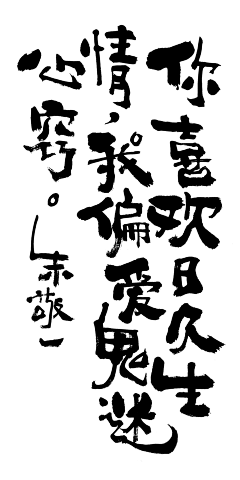 你喜欢日久生
情，我偏爱鬼迷
心窍。朱敬一